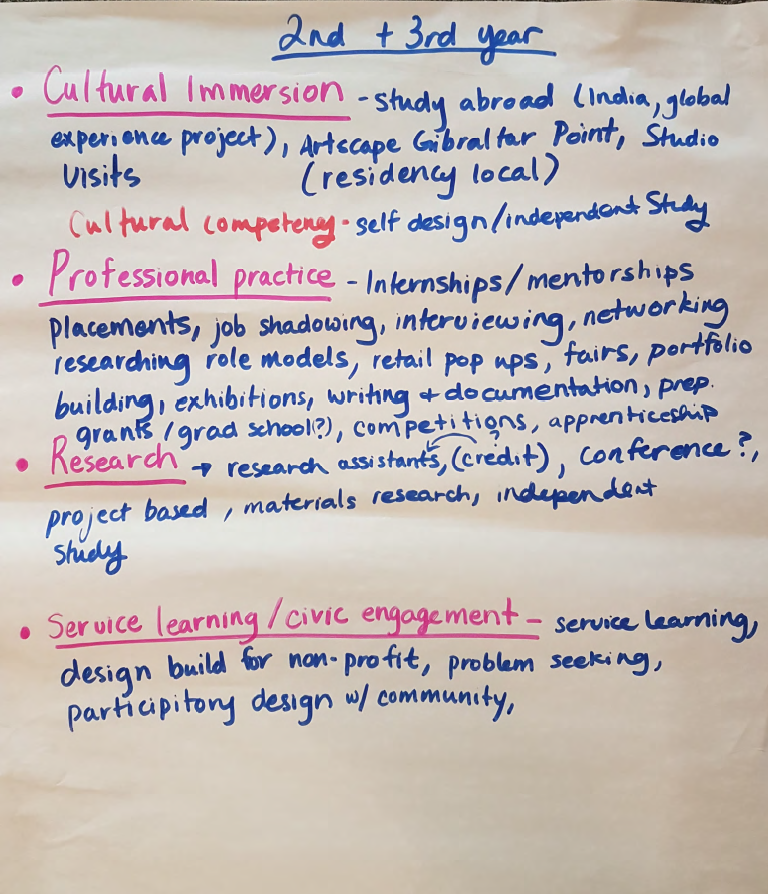 2nd + 3rd year
• Cultural Immersion - study abroad (India, global
experience project), Artscape Gibraltar Point, Studio
Visits (residency local)
Cultural competency - self design/independent Study
• Professional practice - Internships/mentorships
placements, job shadowing, interviewing, networking
researching role models, retail pop ups, fairs, portfolio
building, exhibitions, writing + documentation, prep.
grants/grad school?), competitions, apprenticeship
?
• Research → research assistants, (credit), conference?,
project based, materials research, independent
study
• Service learning/civic engagement - service learning,
design build for non-profit, problem seeking,
participitory design w/ community,